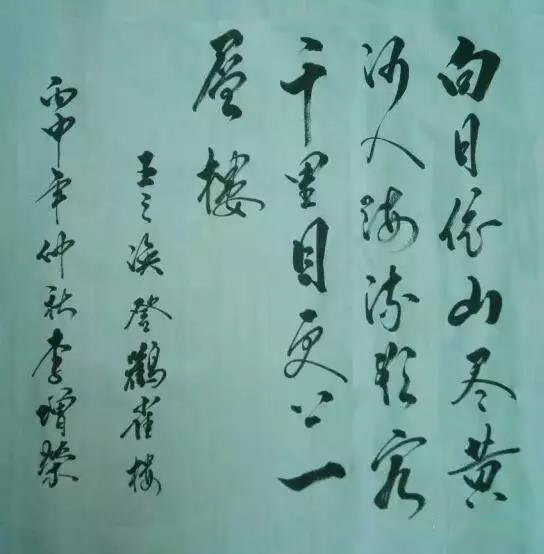 白日依山尽黄
河入海流欲穷
千里目更上一
层楼
王之涣登鹳雀楼
丙申年仲秋李增荣